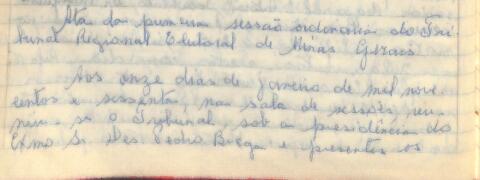 Ata da primeira sessão ordinaria do Tri-
bunal Regional Eleitoral de Minas Gerais
Aos onze dias de janeiro de mil nove
centos e sessenta, na sala de sessões, reu-
niu-se o Tribunal, sob a presidência do
Exmo Sr Des Pedro Braga e presentes os